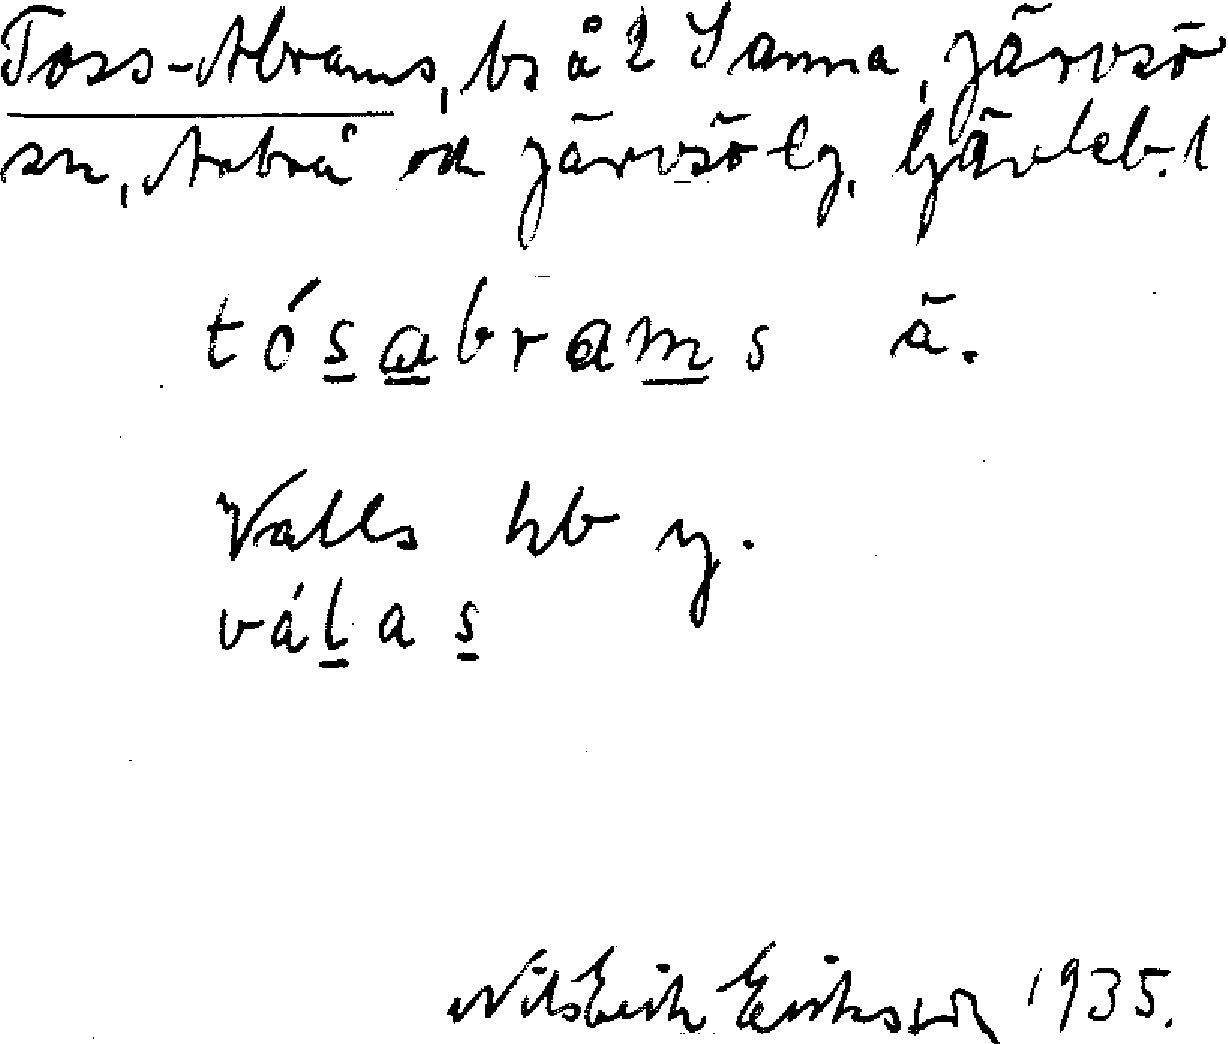 Toss-Abrams, bs å 2 Sanna, Järvsö
sn, Arbrå och Järvsö tg, Gävleb. l
tósabrams ä.
Valls hb y.
válas
Nils Erik Eriksson 1935.